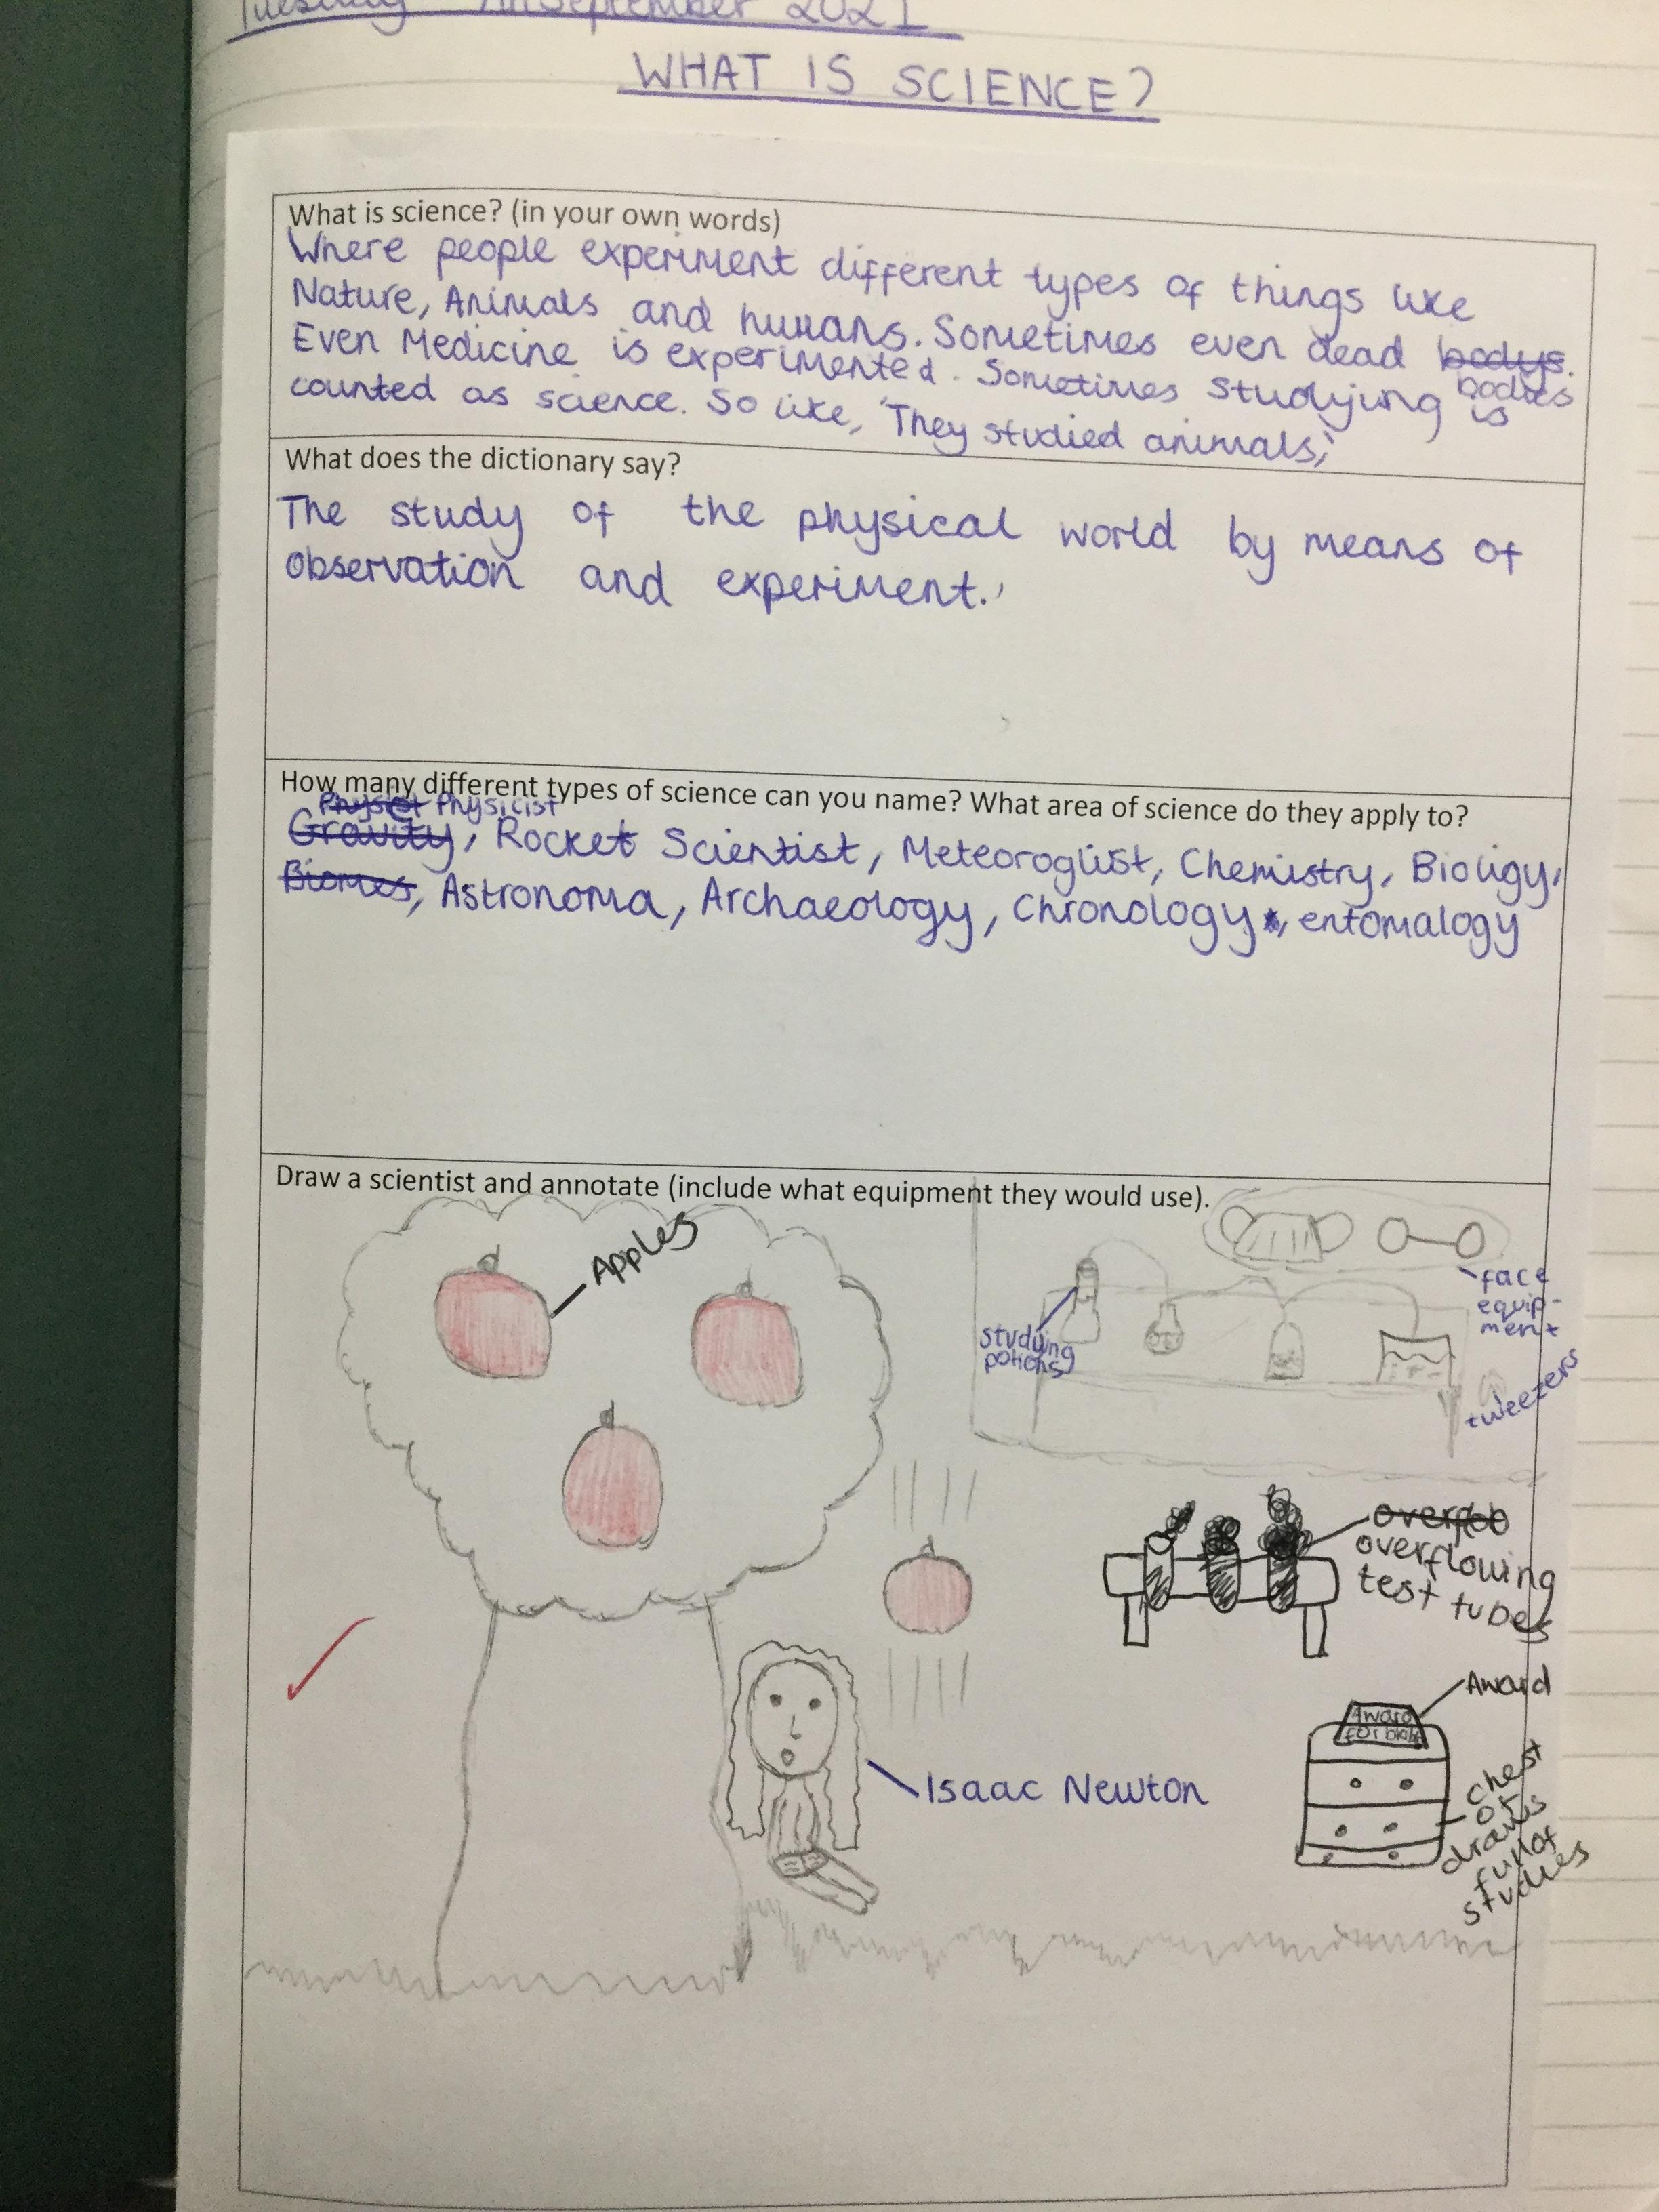 Tuesday 7th September 2021
WHAT IS SCIENCE?
What is science? (in your own words)
Where people experiment different types of things like
Nature, Animals and humans. Sometimes even dead bodys.
bodies
Even Medicine is experimented. Sometimes studying is
counted as science. So like, 'They studied animals,'
What does the dictionary say?
The study of the physical world by means of
observation and experiment.
How many different types of science can you name? What area of science do they apply to?
Physicist
Gravity, Rocket Scientist, Meteoroglist, Chemistry, Bioligy,
Biomes, Astronoma, Archaeology, Chronology, entomalogy
Draw a scientist and annotate (include what equipment they would use).
Apples
studying
potions
face
equip-
ment
tweezers
overflowing
test tubes
Award
Award
for
Isaac Newton
chest
of
draws
full of
studies